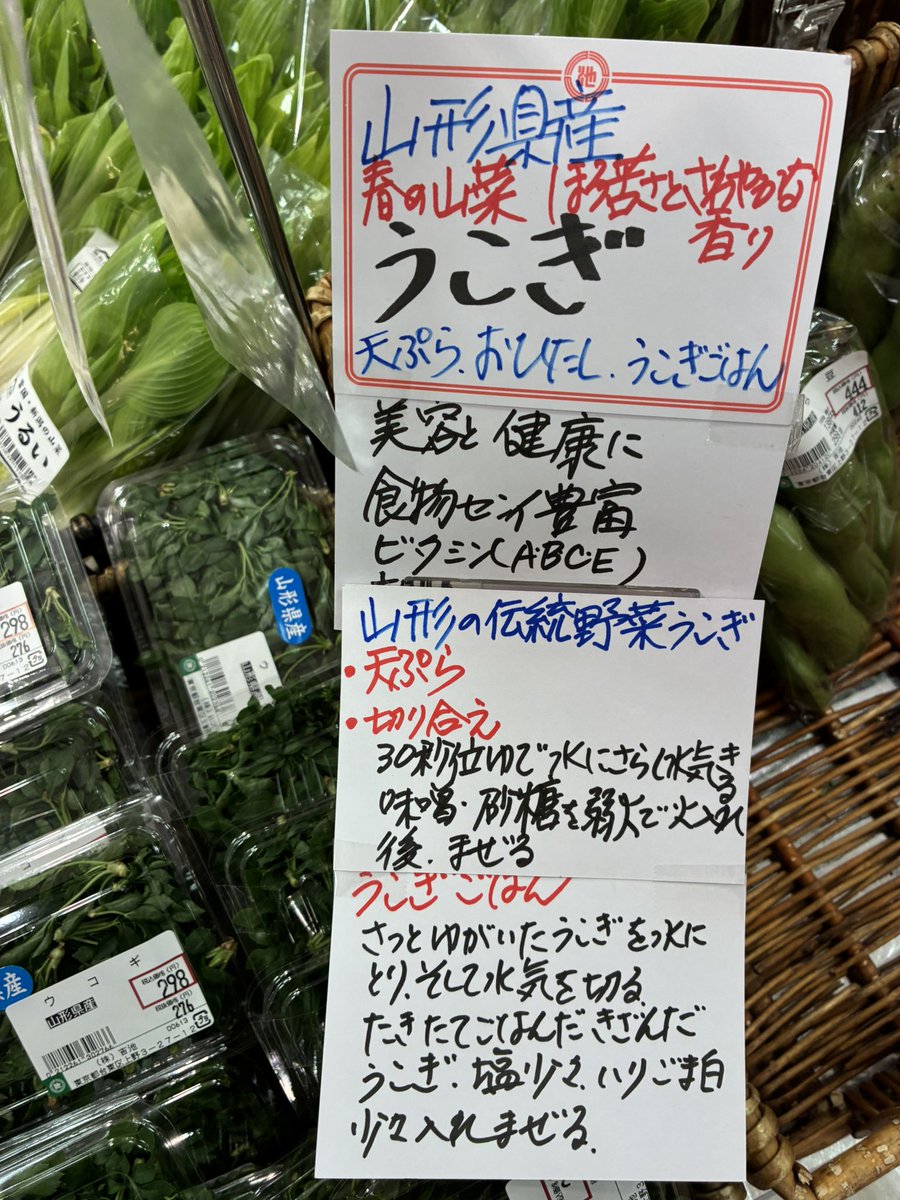 池
山形県産
春の山菜 ほろ苦さとさわやかな
香り
うこぎ
天ぷら、おひたし、うこぎごはん
美容と健康に
食物センイ豊富
ビタミン(A・B・C・E)
山形の伝統野菜うこぎ
・天ぷら
・切り合え
30秒位ゆで水にさらし水気きる
味噌・砂糖を弱火で火入れ
後、まぜる
うこぎごはん
さっとゆがいたうこぎを水に
とり、そして水気を切る
たきたてごはんだきざんだ
うこぎ、塩少々、いりごま白
少々入れまぜる.
うるい
山形県産
298
276
00613
ウコギ
山形県産
税込価格(円)
298
税抜価格(円)
276
00613
(株)吉池
東京都台東区上野3-27-12
444
412
豆